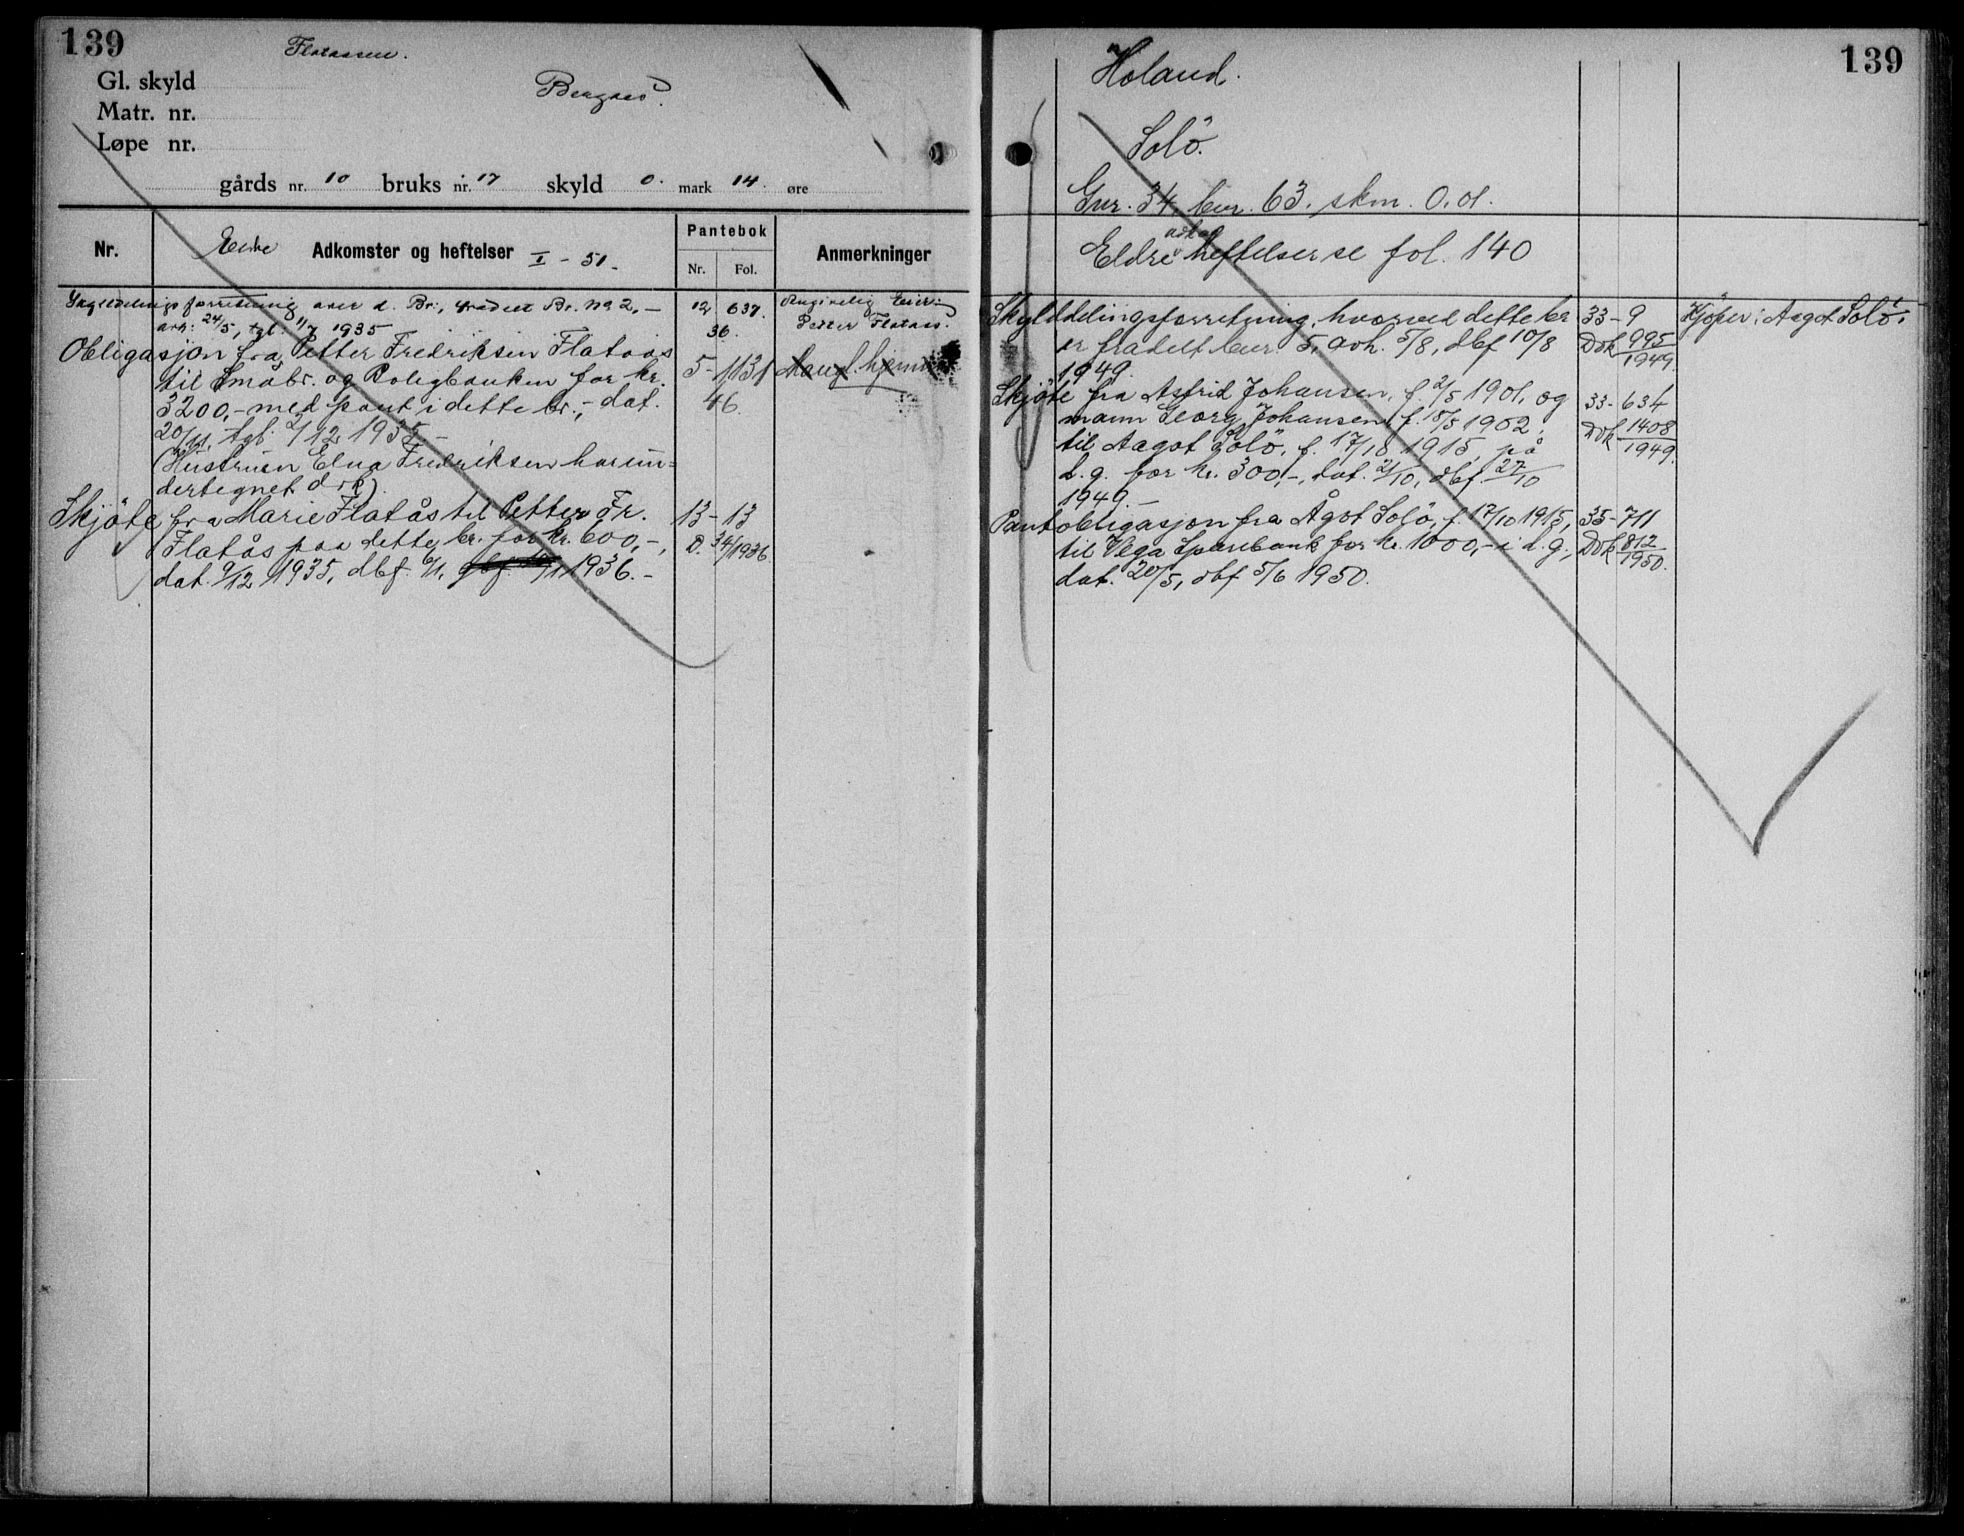 139
Flataasen.
Gl. skyld
Bergaas.
Matr. nr.
Løpe nr.
gårds nr. 10 bruks nr. 17 skyld 0. mark 14. øre
Nr.
Eldre Adkomster og heftelser I - 51.
Pantebok
Nr. Fol.
Anmerkninger
Skylddelingsforretning over d. Br., fradelt Br. No 2, –
avh: 24/5, tgl: 1/7 1935
12 637.
36.
Angivelig Eier:
Petter Flataas.
Obligasjon fra Petter Fredriksen Flataas
til Småbr. og Boligbanken for kr.
3200,- med pant i dette br., - dat.
20/11, tgl. 2/12 1935. –
(Hustruen Elna Fredriksen har un=
dertegnet dok).
5 - 1131
46.
Mangl. hjemmel
Skjöte fra Marie Flatås til Petter Fr.
Flatås paa dette br. for kr. 600,-,
dat. 9/12 1935, dbf. 6/1, 1936. –
13 - 13
D. 34/1936.
139
Holand.
Solö.
Gnr. 34, bnr. 63. skm. 0.01.
Eldre adk. og heftelser se fol. 140
Skylddelingsforretning, hvorved dette br
er fradelt bnr. 5, avh. 5/8, dbf 10/8
1949.
33 - 9
Dok 995/1949.
Kjöper: Aagot Solö.
Skjöte fra Astrid Johansen, f. 2/5 1901, og
mann Georg Johansen, f. 18/5 1902,
til Aagot Solö, f. 17/10 1915, på
d. g. for kr. 300,-, dat. 21/10, dbf. 27/10
1949. –
33 - 634
Dok 1408/1949.
Pantobligasjon fra Ågot Solö, f. 17/10 1915,
til Vega Sparebank for kr. 1000,- i d. g.,
dat. 20/5, dbf 5/6 1950.
35 - 711
Dok 812/1950.